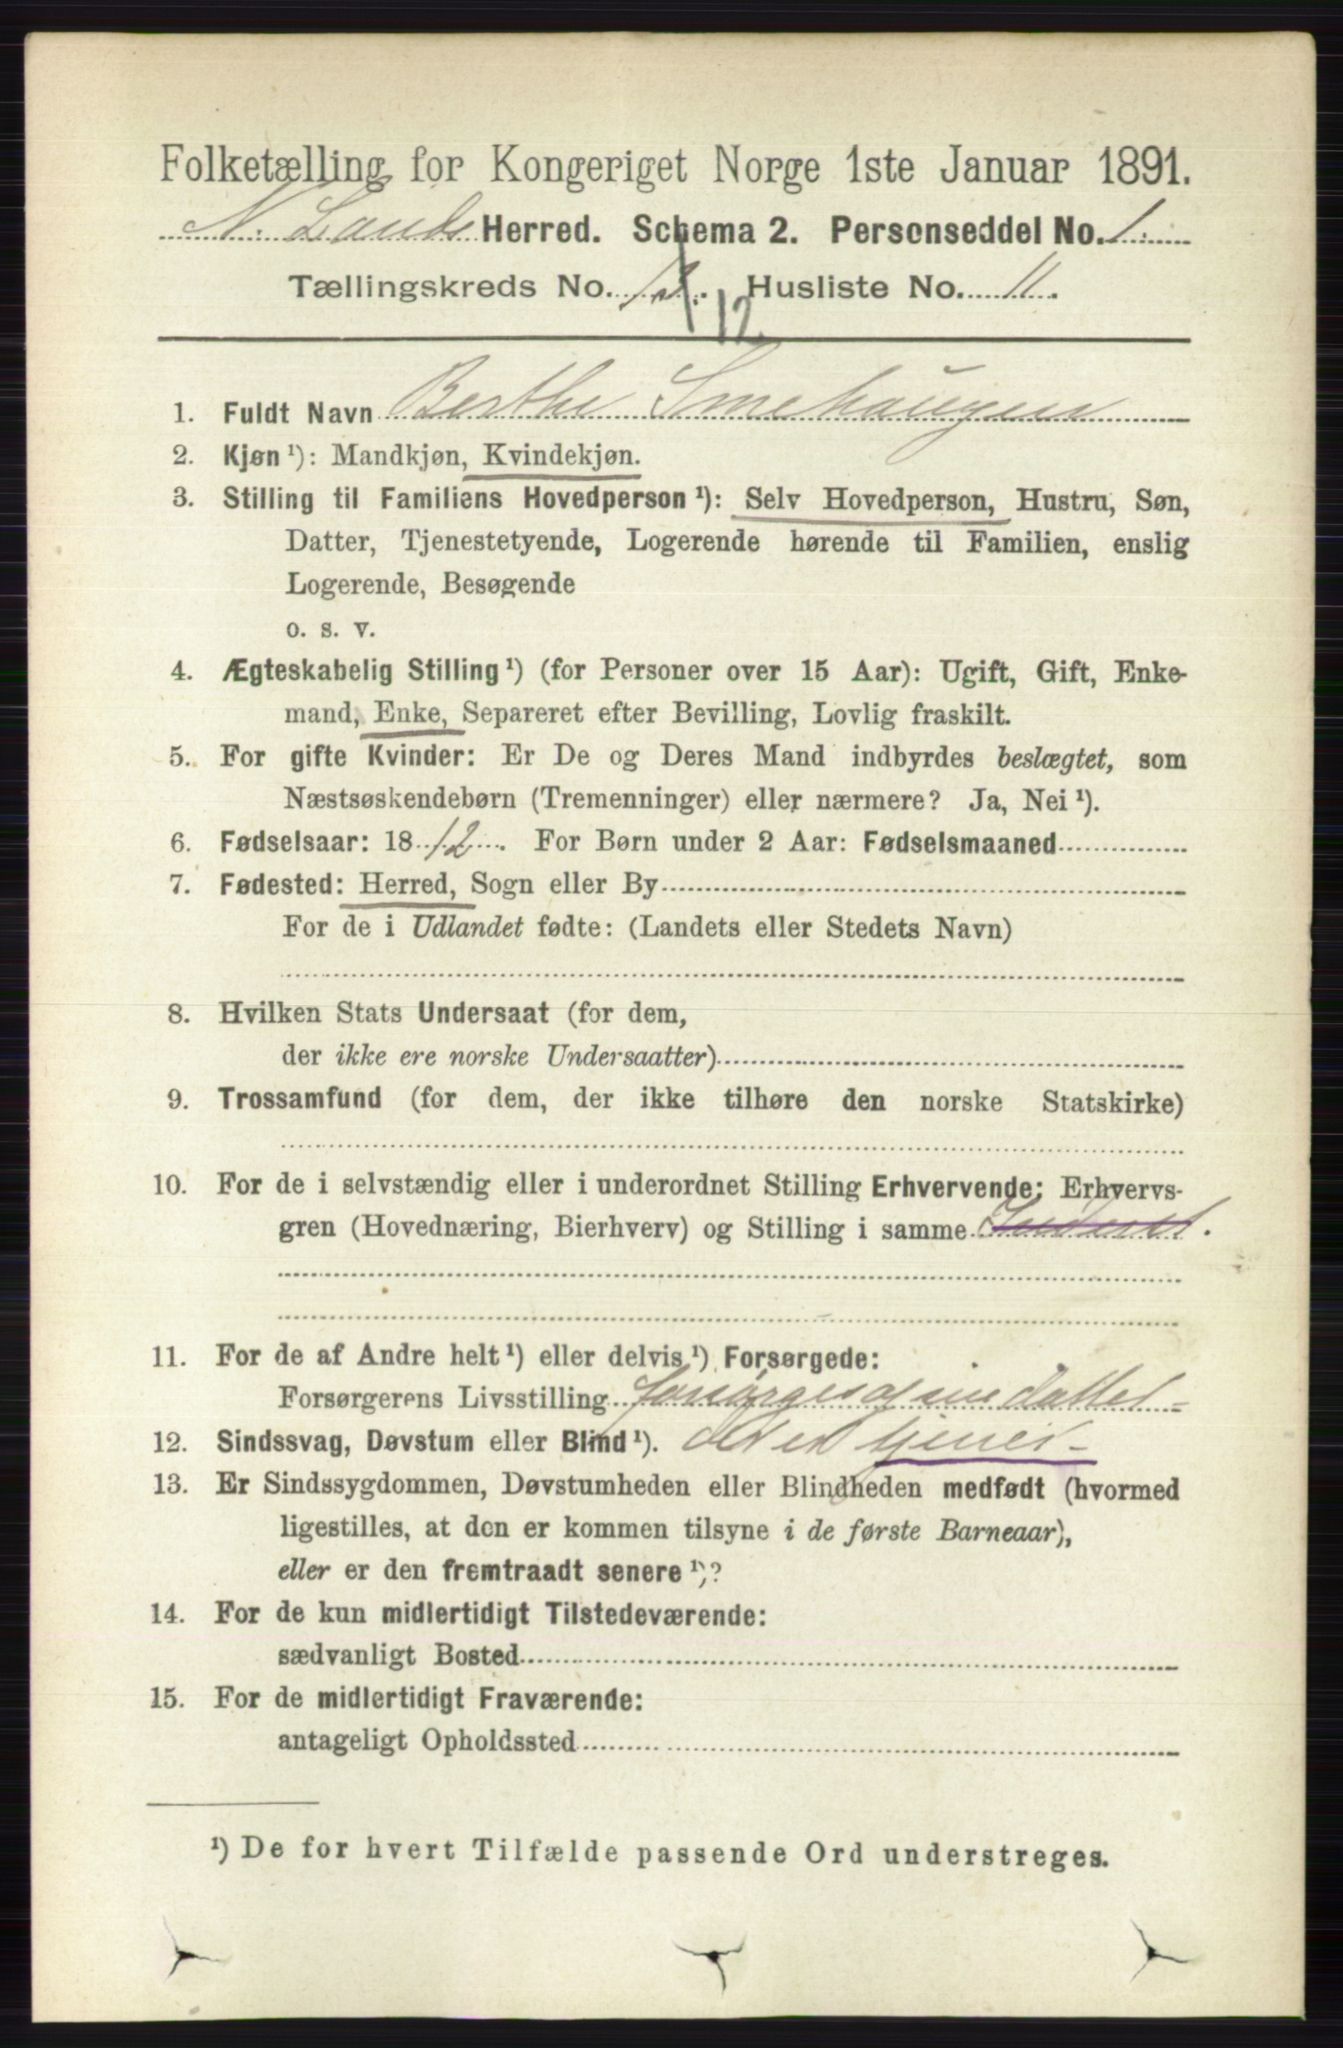 Folketælling for Kongeriget Norge 1ste Januar 1891.
N. Lands Herred. Schema 2. Personseddel No. 1.
Tællingskreds No. 13. Husliste No. 11.
12
1. Fuldt Navn Berthe Smehaugen
2. Kjøn ¹): Mandkjøn, Kvindekjøn.
3. Stilling til Familiens Hovedperson ¹): Selv Hovedperson, Hustru, Søn,
Datter, Tjenestetyende, Logerende hørende til Familien, enslig
Logerende, Besøgende
o. s. v.
4. Ægteskabelig Stilling ¹) (for Personer over 15 Aar): Ugift, Gift, Enke-
mand, Enke, Separeret efter Bevilling, Lovlig fraskilt.
5. For gifte Kvinder: Er De og Deres Mand indbyrdes beslægtet, som
Næstsøskendebørn (Tremenninger) eller nærmere? Ja, Nei ¹).
6. Fødselsaar: 1812. For Børn under 2 Aar: Fødselsmaaned
7. Fødested: Herred, Sogn eller By
For de i Udlandet fødte: (Landets eller Stedets Navn)
8. Hvilken Stats Undersaat (for dem,
der ikke ere norske Undersaatter)
9. Trossamfund (for dem, der ikke tilhøre den norske Statskirke)
10. For de i selvstændig eller i underordnet Stilling Erhvervende: Erhvervs-
gren (Hovednæring, Bierhverv) og Stilling i samme Inderst.
11. For de af Andre helt ¹) eller delvis ¹) Forsørgede:
Forsørgerens Livsstilling forsørges af sin datter
12. Sindssvag, Døvstum eller Blind ¹). der er tjener
13. Er Sindssygdommen, Døvstumheden eller Blindheden medfødt (hvormed
ligestilles, at den er kommen tilsyne i de første Barneaar),
eller er den fremtraadt senere ¹)?
14. For de kun midlertidigt Tilstedeværende:
sædvanligt Bosted
15. For de midlertidigt Fraværende:
antageligt Opholdssted
¹) De for hvert Tilfælde passende Ord understreges.